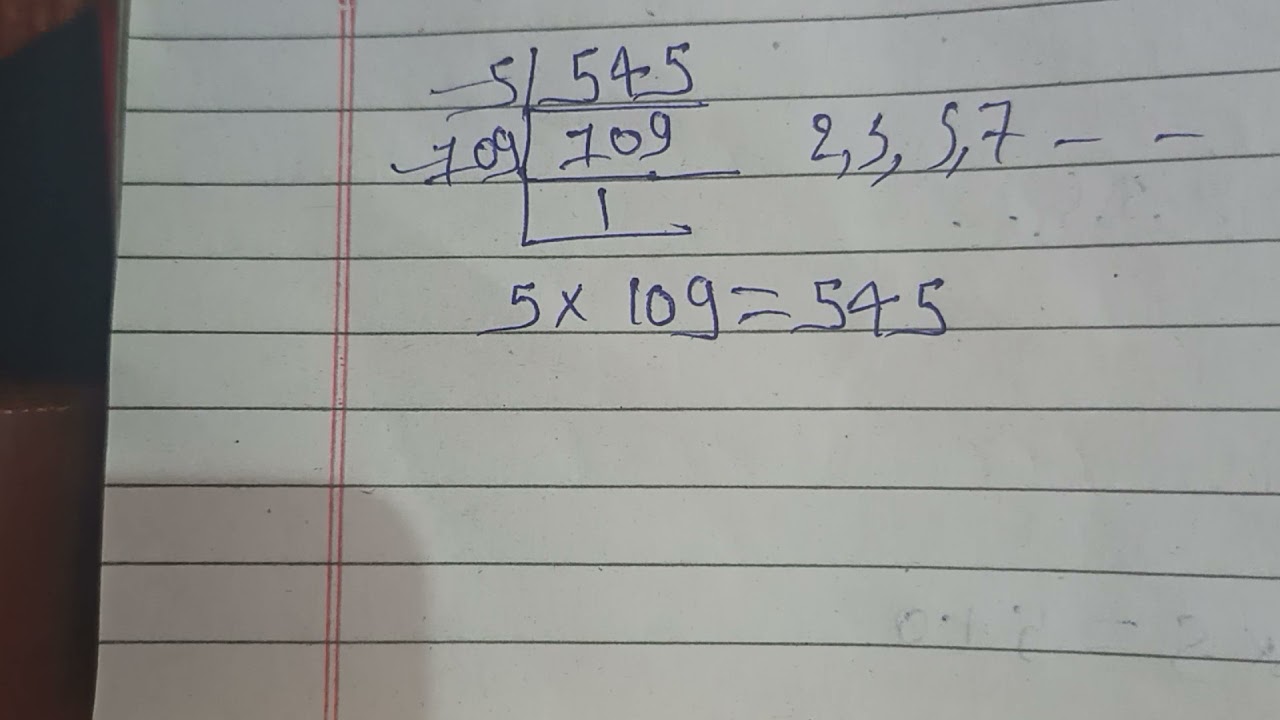 5 545
109 109 2, 3, 5, 7 - -
1
5 x 109 = 545